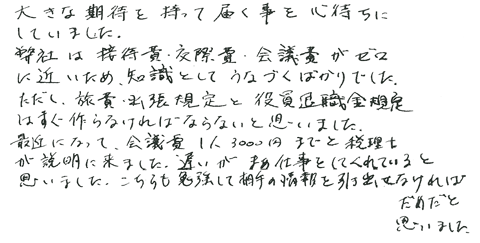 大きな期待を持って届く事を心待ちに
していました。
弊社は接待費・交際費・会議費がゼロ
に近いため、知識としてうなづくばかりでした。
ただし、旅費・出張規定と役員退職金規定
はすぐ作らなければならないと思いました。
最近になって、会議費1人3000円までと税理士
が説明に来ました。遅いがまあ仕事をしてくれていると
思いました。こちらも勉強して相手の情報を引き出せなければ
だめだと
思いました